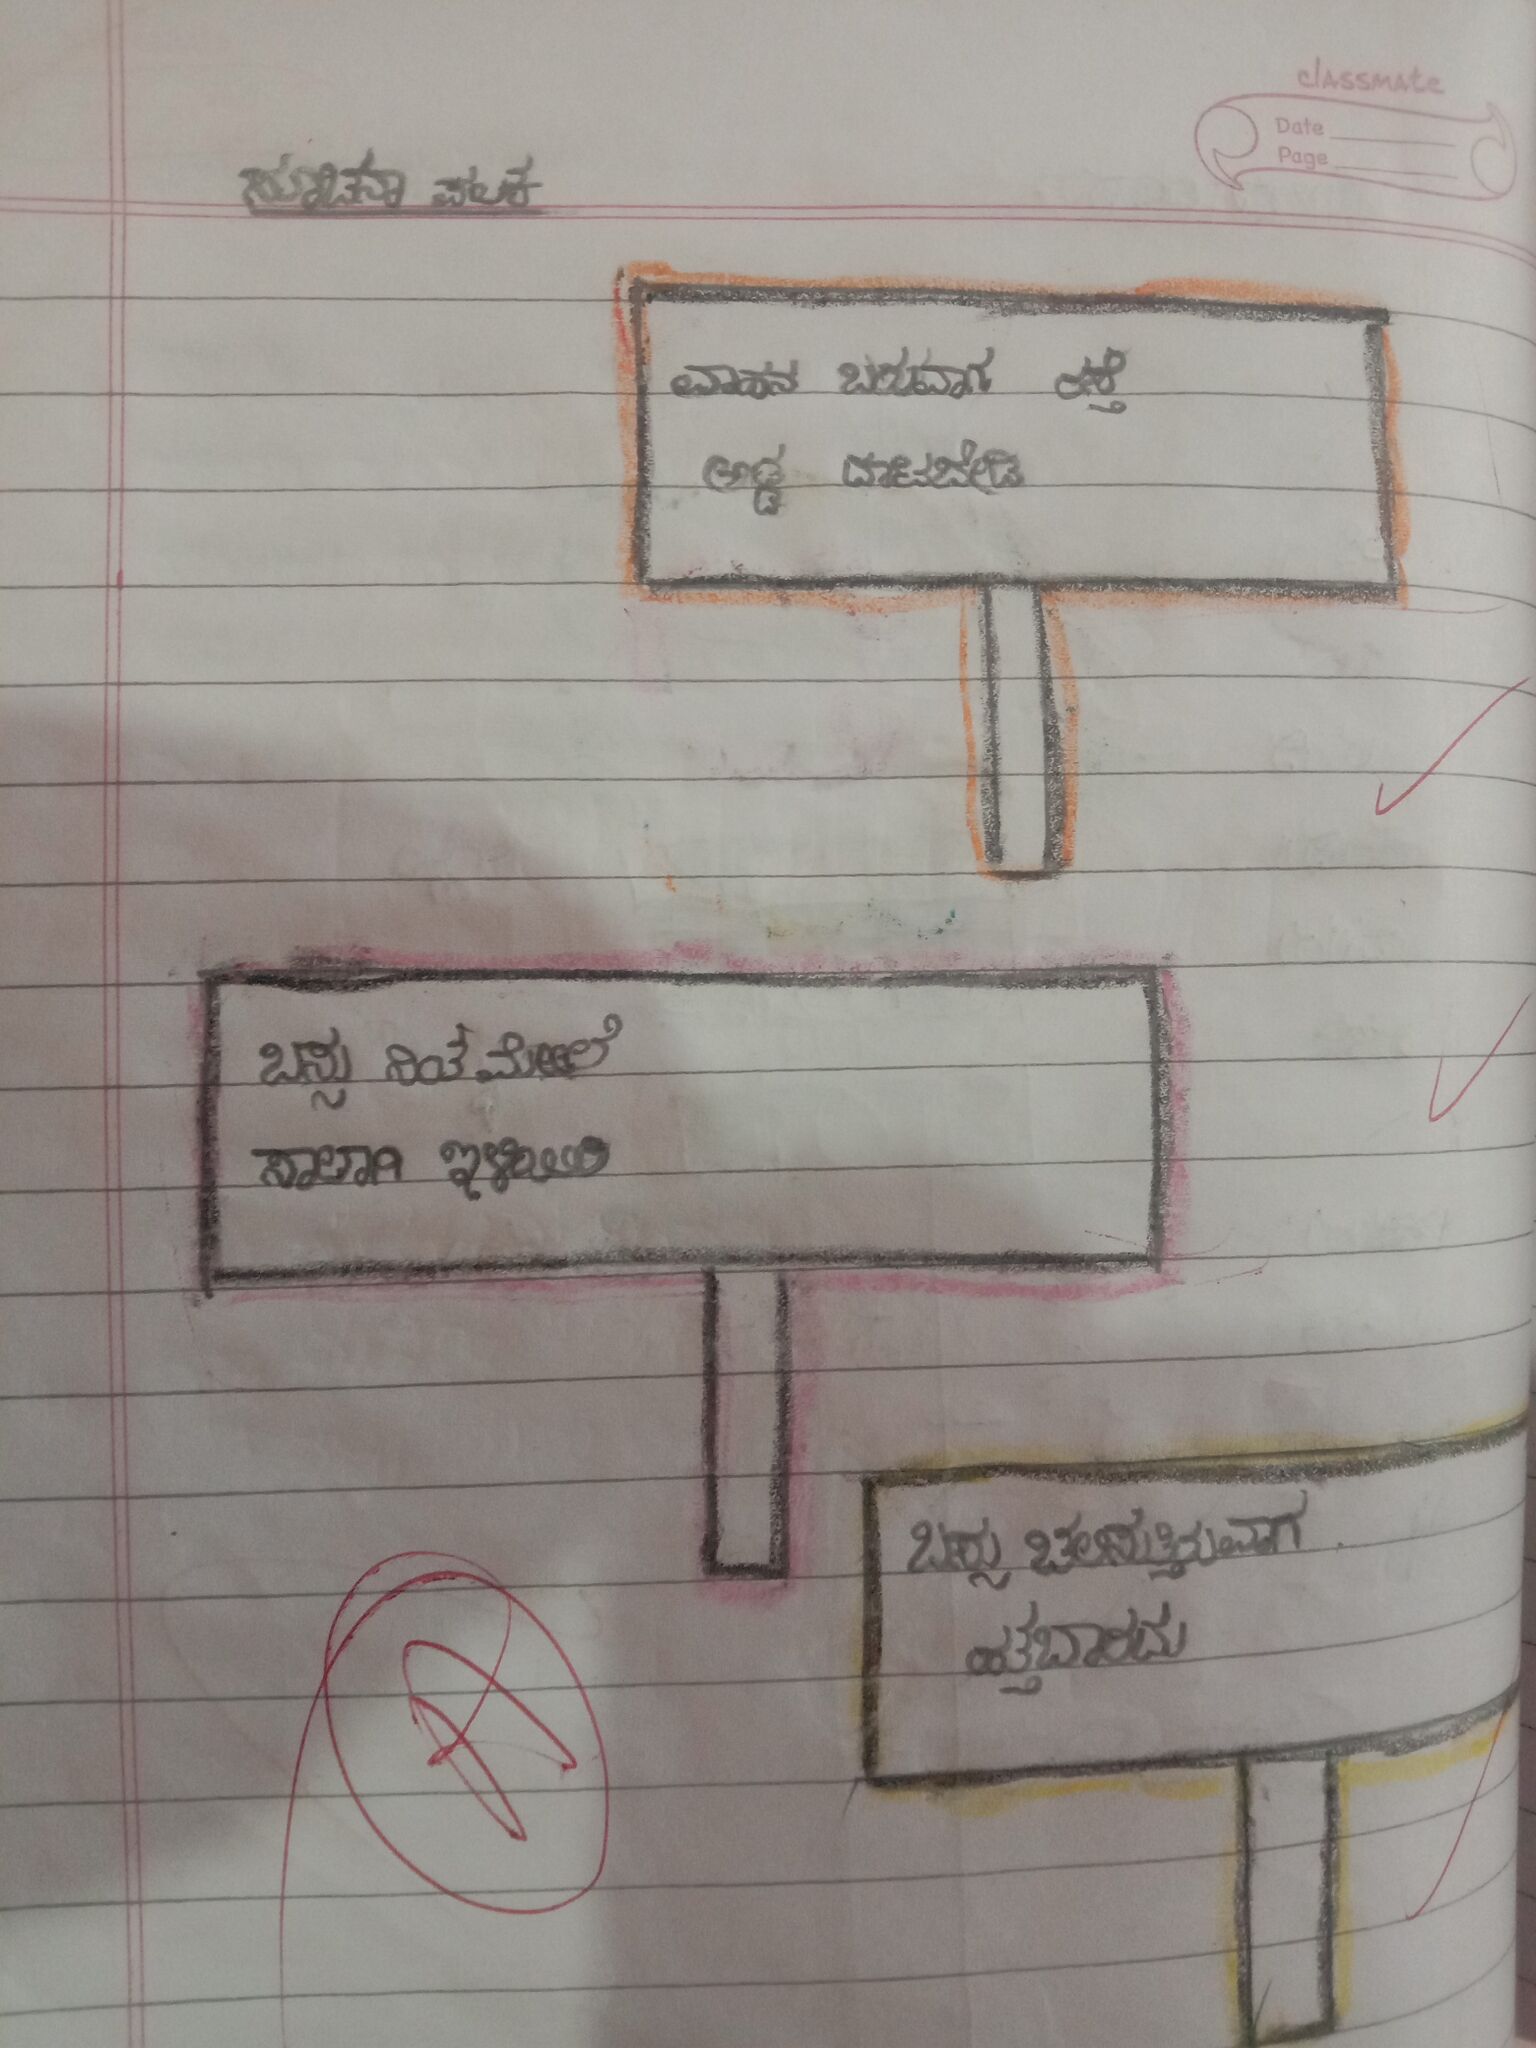 classmate
Date
Page
ಸೂಚನಾ ಫಲಕ
ವಾಹನ ಬರುವಾಗ ರಸ್ತೆ
ಅಡ್ಡ ದಾಟಬೇಡಿ
ಬಸ್ಸು ನಿಂತ ಮೇಲೆ
ಸಾಲಾಗಿ ಇಳಿಯಿರಿ
ಬಸ್ಸು ಚಲಿಸುತ್ತಿರುವಾಗ
ಹತ್ತಬಾರದು
A